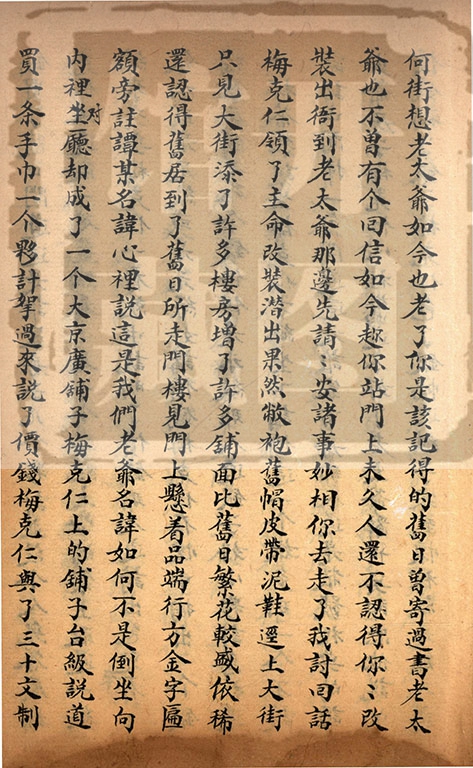 何街想老太爺如今也老了你是該記得的舊日曾寄過書老太
爺也不曾有个回信如今趂你站門上未久人還不認得你〻改
裝出衙到老太爺那邊先請〻安諸事妙相你去走了我討回話
梅克仁領了主命改裝潜出果然敝袍舊帽皮帶泥鞋逕上大街
只見大街添了許多樓房增了許多舖面比舊日繁花較盛依稀
還認得舊居到了舊日所走門樓見門上懸着品端行方金字匾
額旁註譚某名諱心裡說這是我們老爺名諱如何不是倒坐向
内裡对坐廳却成了一个大京廣舖子梅克仁上的舖子台級說道
買一条手巾一个夥計拏過來說了價錢梅克仁與了三十文制